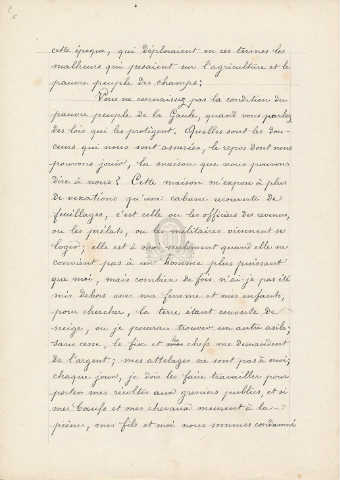 cette époque, qui déploraient en ces termes les
malheurs qui pesaient sur l'agriculture et le
pauvre peuple des champs:
Vous ne connaissez pas la condition du
pauvre peuple de la Gaule, quand vous parlez
des lois qui les protègent. Quelles sont les dou-
ceurs qui nous sont assurées, le repos dont nous
pouvons jouir, la maison que nous pouvons
dire à nous? Cette maison m'expose à plus
de vexations qu'une cabane recouverte de
feuillages, c'est celle ou les officiers des revenus,
ou les prélats, ou les militaires viennent se
loger; elle est à moi seulement quand elle ne
convient pas à un homme plus puissant
que moi, mais combien de fois n'ai-je pas été
mis dehors avec ma femme et mes enfants,
pour chercher, la terre étant couverte de
neige, ou je pourrais trouver un autre asile;
sans cesse, le fisc et les chefs me demandent
de l'argent; mes attelages ne sont pas à moi;
chaque jour, je dois les faire travailler pour
porter mes récoltes aux greniers publics, et si
mes bœufs et mes chevaux meurent à la
peine, mes fils et moi nous sommes condamné